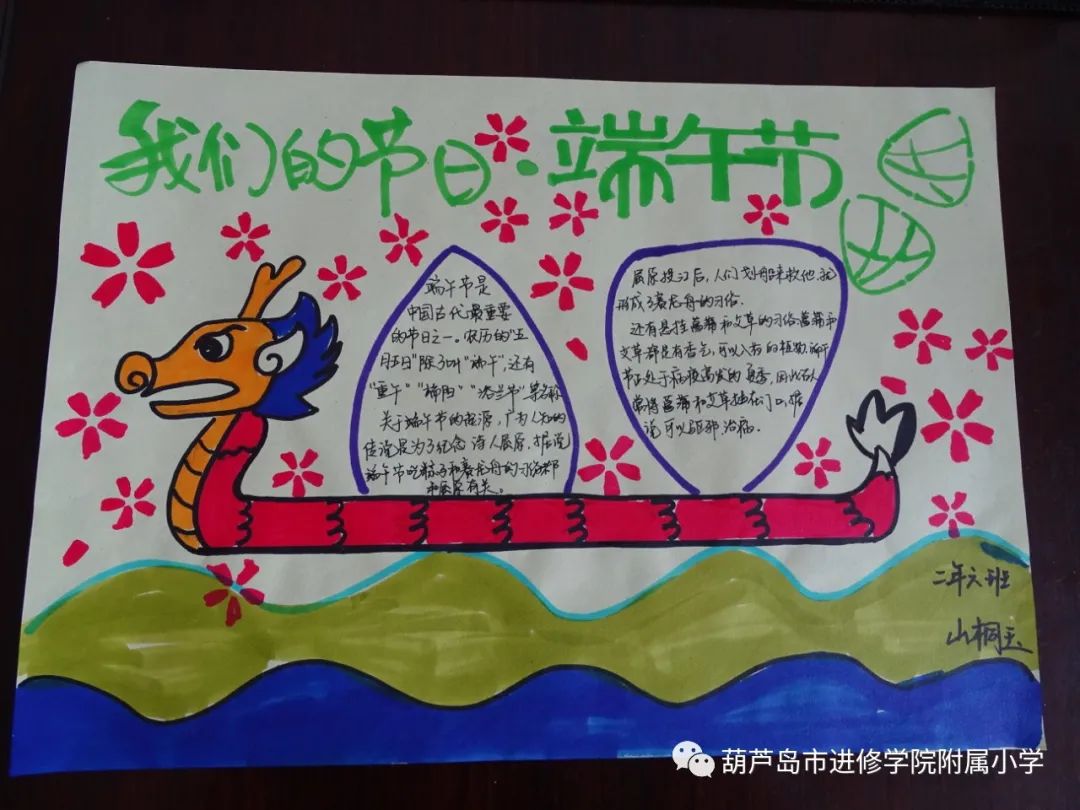 我们的节日·端午节
端午节是
中国古代最重要
的节日之一。农历的"五
月五日"除了叫"端午",还有
"重午" "端阳" "浴兰节"等名称
关于端午节的起源,广为人知的
传说是为了纪念诗人屈原,据说
端午节吃粽子和赛龙舟的习俗都
和屈原有关。
屈原投江后,人们划船来救他,就
形成了赛龙舟的习俗.
还有悬挂菖蒲和艾草的习俗菖蒲和
艾草都是有香气,可以入药的植物,端午
节正处于病疫高发的夏季,因此古人
常将菖蒲和艾草挂在门口,据
说可以驱邪,治病.
二年六班
山桐玉
葫芦岛市进修学院附属小学